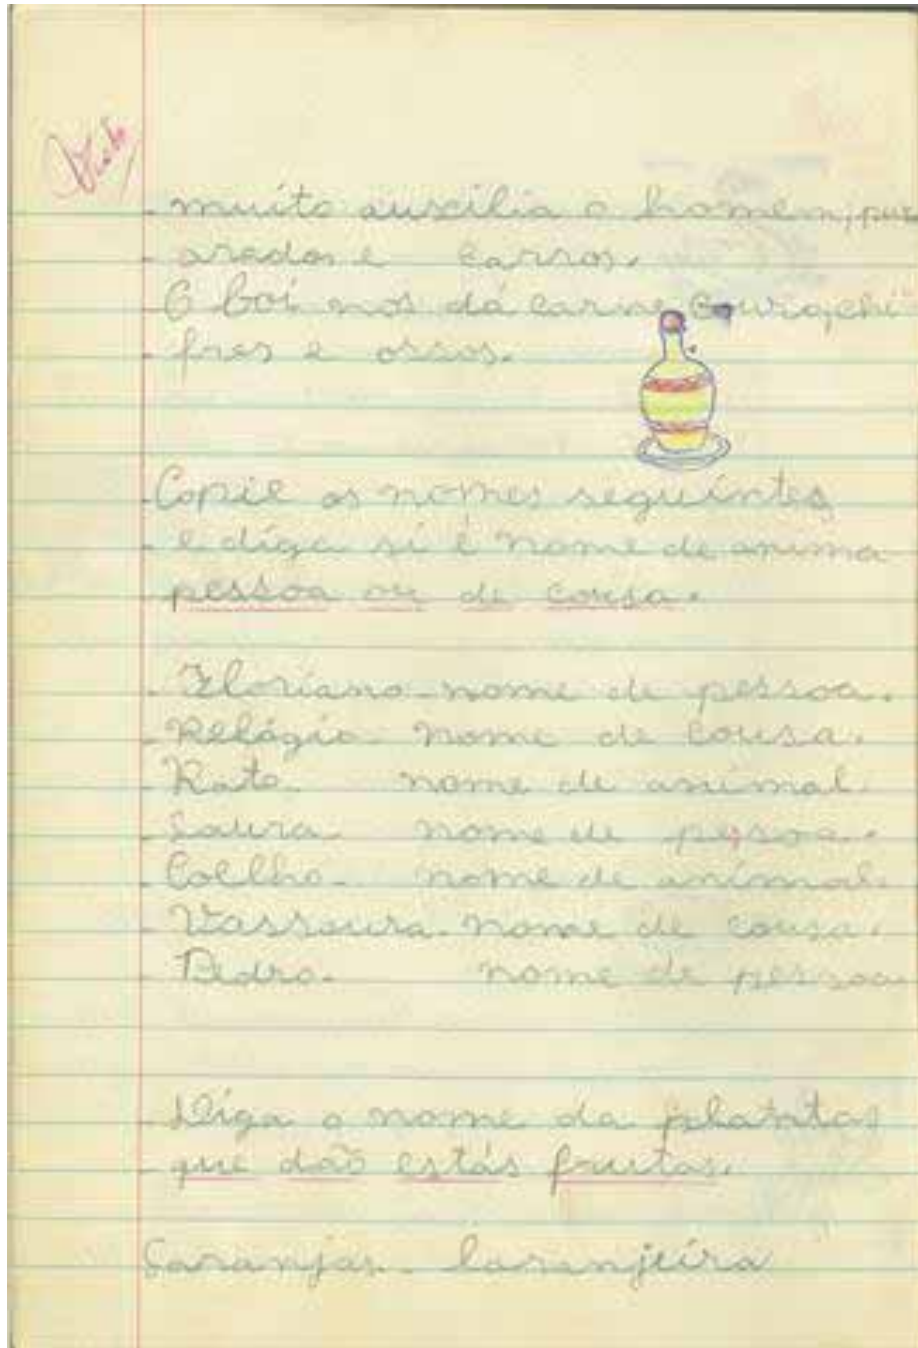 Visto
muito auxilia o homem, pux
arados e carros.
O boi nos dá carne, couro, chi
fres e ossos.
Copie os nomes seguintes
e diga si é nome de anima
pessoa ou de cousa.
Floriano - nome de pessoa.
Relógio - nome de cousa.
Rato - nome de animal.
Laura - nome de pessoa.
Coelho - nome de animal.
Vassoura - nome de cousa.
Pedro - nome de pessoa
Diga o nome da plantas
que dão estás frutas.
Laranjas - laranjeira